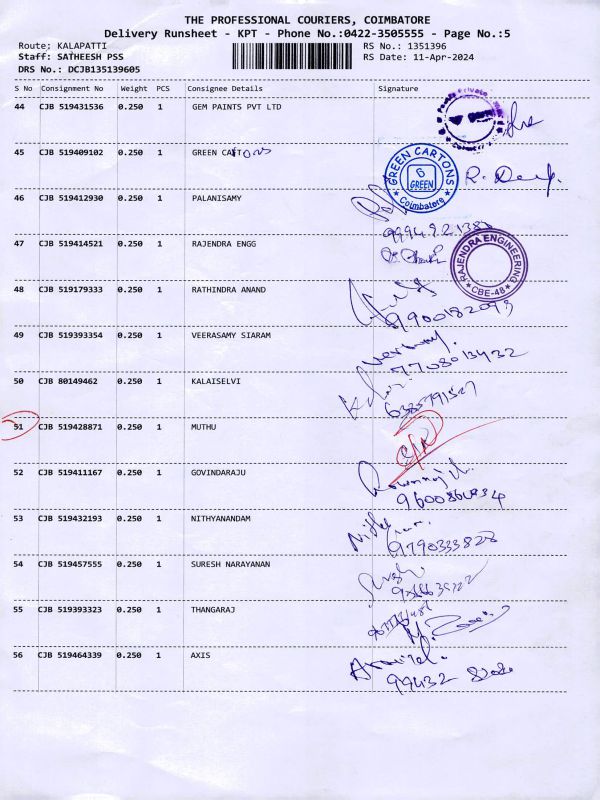 THE PROFESSIONAL COURIERS, COIMBATORE
Delivery Runsheet - KPT - Phone No.:0422-3505555 - Page No.:5
Route; KALAPATTI RS No.: 1351396
Staff: SATHEESH PSS RS Date: 11-Apr-2024
DRS No.: DCJB135139605
S No Consignment No Weight PCS Consignee Details Signature
44 CJB 519431536 0.250 1 GEM PAINTS PVT LTD
45 CJB 519409102 0.250 1 GREEN CARTONS
GREEN CARTONS
6
GREEN
Coimbatore
46 CJB 519412930 0.250 1 PALANISAMY
47 CJB 519414521 0.250 1 RAJENDRA ENGG
RAJENDRA ENGINEERING
CBE-48
48 CJB 519179333 0.250 1 RATHINDRA ANAND
9900182093
49 CJB 519393354 0.250 1 VEERASAMY SIARAM
7708013432
50 CJB 80149462 0.250 1 KALAISELVI
51 CJB 519428871 0.250 1 MUTHU
52 CJB 519411167 0.250 1 GOVINDARAJU
53 CJB 519432193 0.250 1 NITHYANANDAM
9790333828
54 CJB 519457555 0.250 1 SURESH NARAYANAN
55 CJB 519393323 0.250 1 THANGARAJ
56 CJB 519464339 0.250 1 AXIS
99432